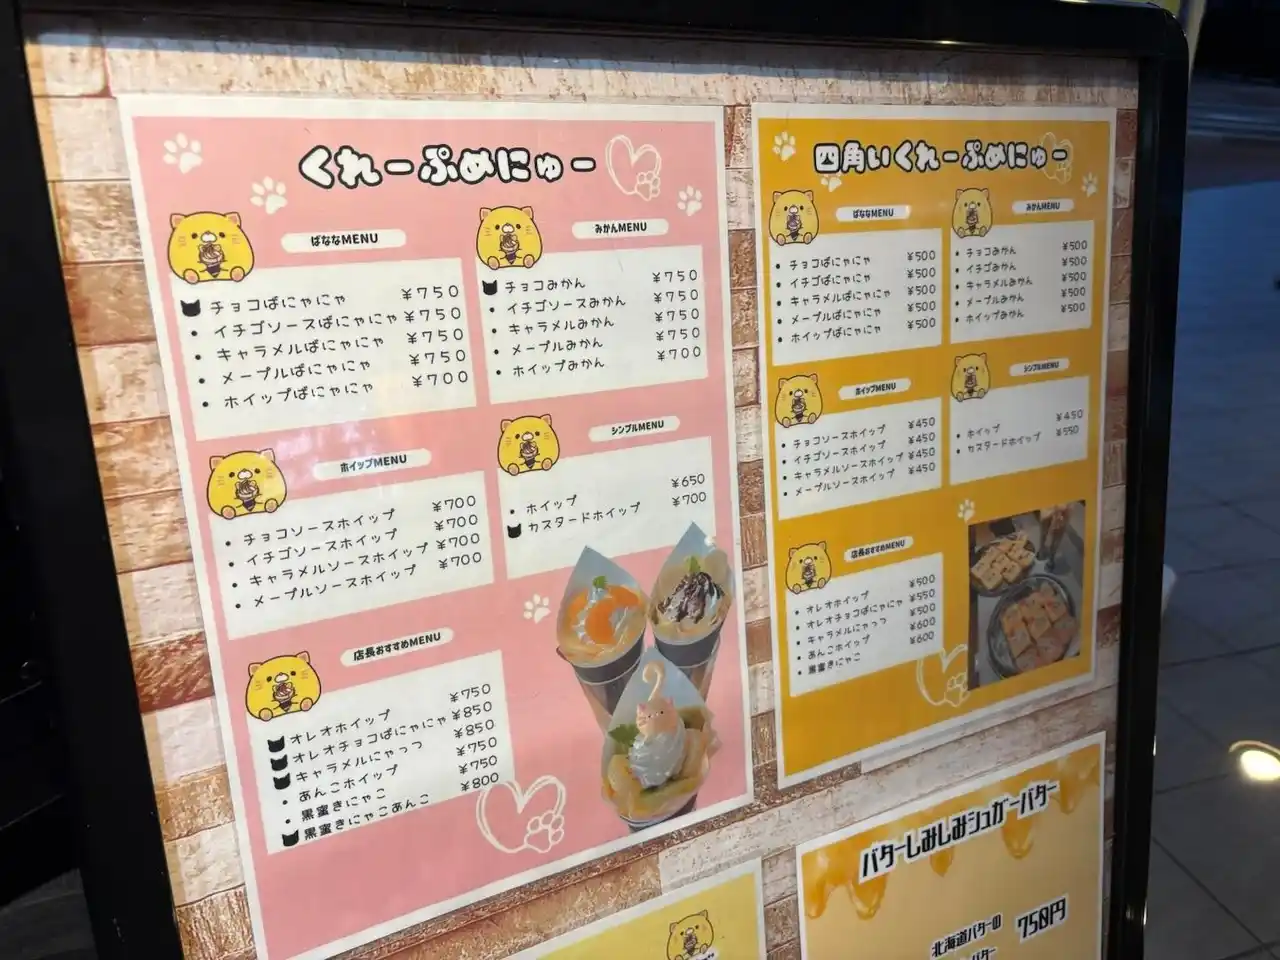 くれーぷめにゅー
ばななMENU
チョコばにゃにゃ ¥750
イチゴソースばにゃにゃ ¥750
キャラメルばにゃにゃ ¥750
メープルばにゃにゃ ¥750
ホイップばにゃにゃ ¥700
みかんMENU
チョコみかん ¥750
イチゴソースみかん ¥750
キャラメルみかん ¥750
メープルみかん ¥750
ホイップみかん ¥700
ホイップMENU
チョコソースホイップ ¥700
イチゴソースホイップ ¥700
キャラメルソースホイップ ¥700
メープルソースホイップ ¥700
シンプルMENU
ホイップ ¥650
カスタードホイップ ¥700
店長おすすめMENU
オレオホイップ ¥750
オレオチョコばにゃにゃ ¥850
キャラメルにゃっつ ¥850
あんこホイップ ¥750
黒蜜きにゃこ ¥750
黒蜜きにゃこあんこ ¥800
四角いくれーぷめにゅー
ばななMENU
チョコばにゃにゃ ¥500
イチゴばにゃにゃ ¥500
キャラメルばにゃにゃ ¥500
メープルばにゃにゃ ¥500
ホイップばにゃにゃ ¥500
みかんMENU
チョコみかん ¥500
イチゴみかん ¥500
キャラメルみかん ¥500
メープルみかん ¥500
ホイップみかん ¥500
ホイップMENU
チョコソースホイップ ¥450
イチゴソースホイップ ¥450
キャラメルソースホイップ ¥450
メープルソースホイップ ¥450
シンプルMENU
ホイップ ¥450
カスタードホイップ ¥550
店長おすすめMENU
オレオホイップ ¥500
オレオチョコばにゃにゃ ¥550
キャラメルにゃっつ ¥500
あんこホイップ ¥600
黒蜜きにゃこ ¥600
バターしみしみシュガーバター
北海道バターの 750円
バター